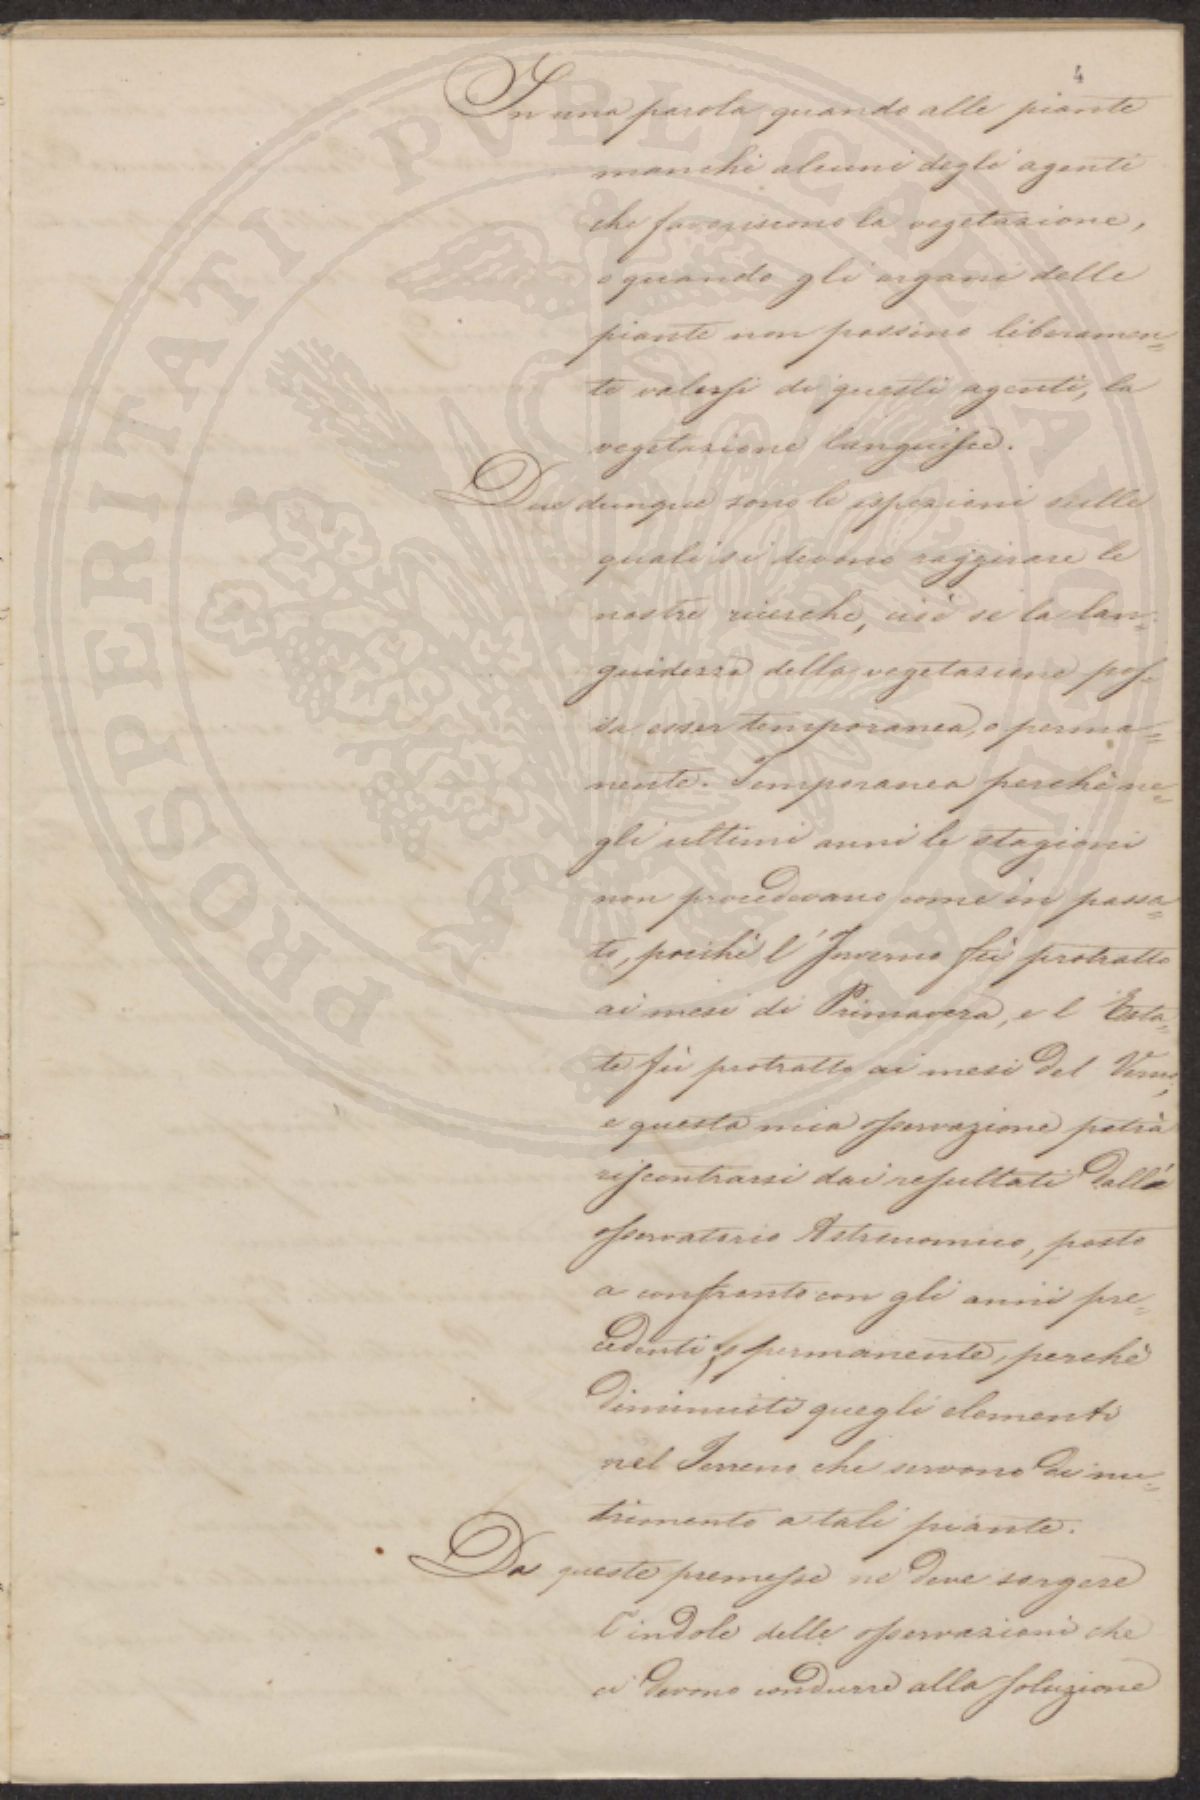 4
In una parola quando alle piante
manchi alcuni degli agenti
che favoriscono la vegetazione,
o quando gli organi delle
piante non possino liberamen=
te valersi di questi agenti, la
vegetazione languisce.
Due dunque sono le ispezioni sulle
quali si devono raggirare le
nostre ricerche, cioè se la lan=
guidezza della vegetazione pos=
sa esser temporanea, o perma=
nente. Temporanea perchè ne=
gli ultimi anni le stagioni
non procedevano come in passa=
to, poichè l'Inverno fù protratto
ai mesi di Primavera, e l Esta=
te fù protratto ai mesi del Verno,
e questa mia osservazione potrà
riscontrarsi dai resultati dall'
osservatorio Astronomico, posto
a confronto con gli anni pre=
cedenti; permanente, perchè
diminuiti quegli elementi
nel Terreno che servono di nu=
trimento a tali piante.
Da queste premesse ne deve sorgere
l'indole delle osservazioni che
ci devono condurre alla soluzione
PROSPERITATI PVBLICAE AVGENDAE